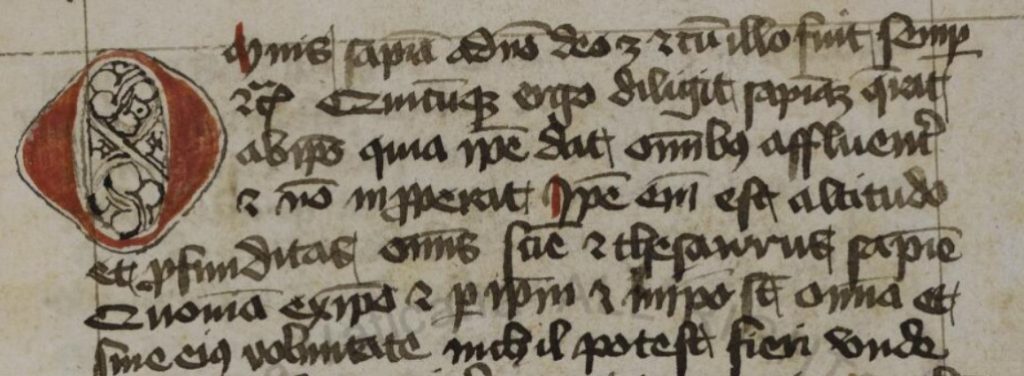 Omnis sapīa a dnō deo ʒ ⁊ cū illo fuit semꝑ
⁊cꝭ Quicūqꝫ ergo diligit sapīaꝫ q̄rat
ab ip̄o quia ip̄e dat om̄ibꝰ affluent̄
⁊ nō inꝓperat Ip̄e em̄ est altitudo
et ꝓfunditas om̄is scīe ⁊ thesaurus sapīe
Quoniā ex ip̄o ⁊ ꝑ ip̄m ⁊ in ip̄o st̄ om̄ia et
sine eiꝰ voluntate nichil potest fieri vnde